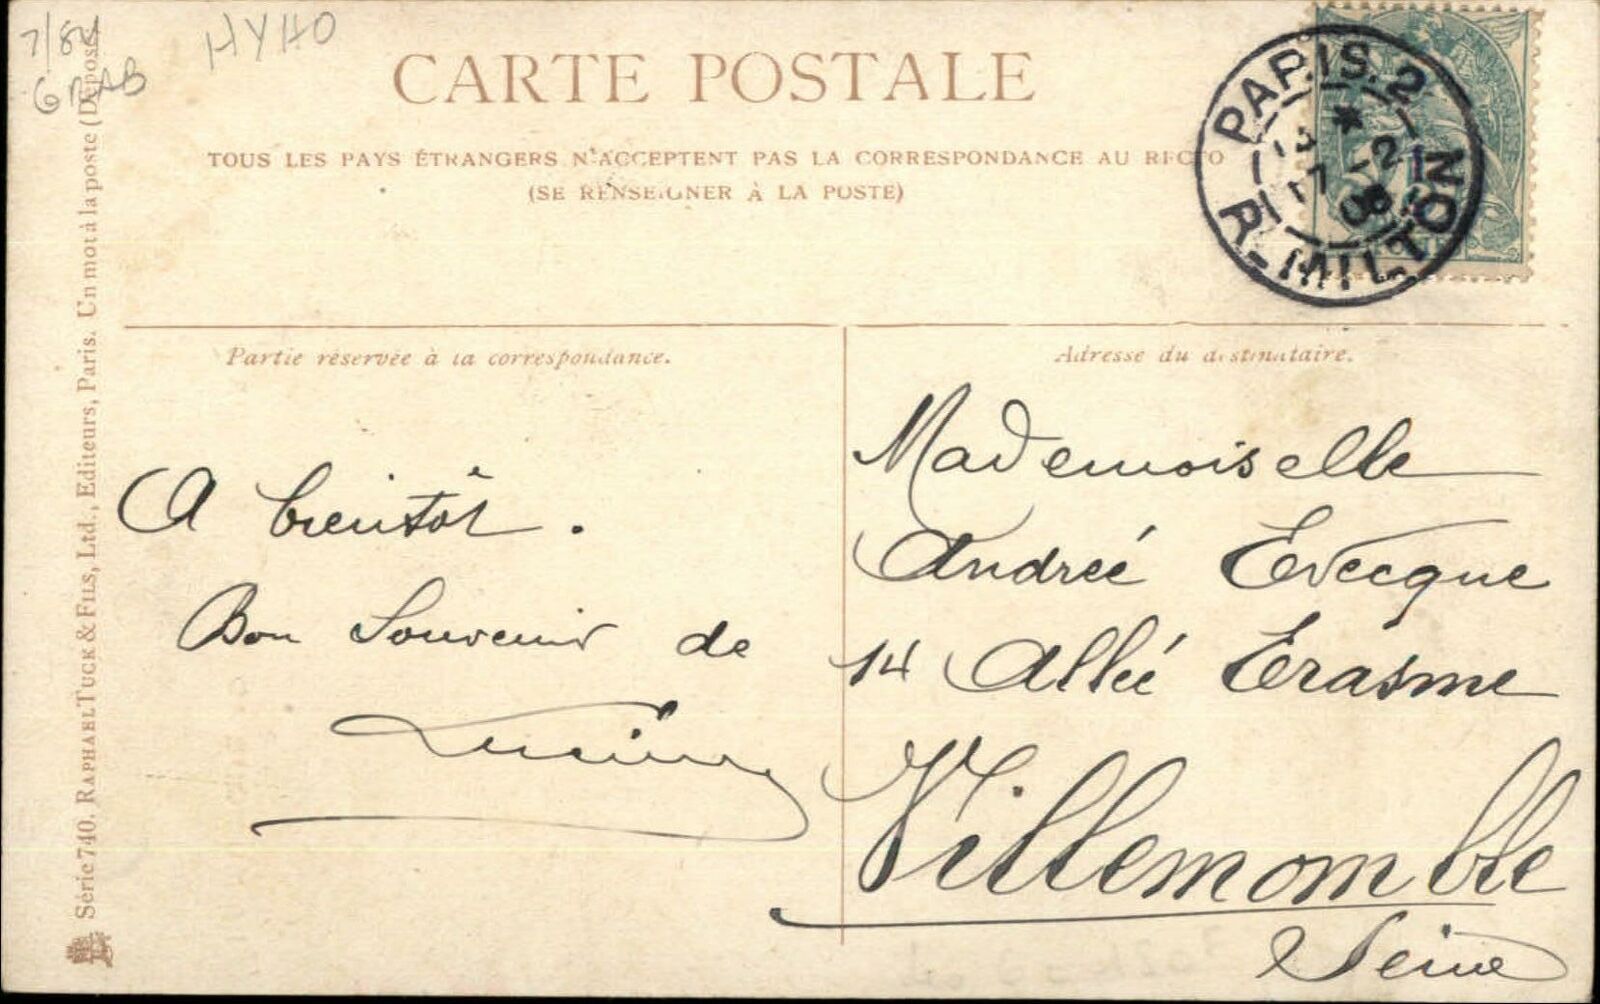 7/84
GRAB
HYHO
CARTE POSTALE
TOUS LES PAYS ÉTRANGERS N'ACCEPTENT PAS LA CORRESPONDANCE AU RECTO
(SE RENSEIGNER À LA POSTE)
PARIS.2
R. MILTON
Partie réservée à la correspondance.
A bientôt.
Bon Souvenir de
Adresse du destinataire.
Mademoiselle
Andreé Evecque
14 Alleé Erasme
Villemomble
Seine
Série 740. RAPHAEL TUCK & FILS, Ltd., Editeurs, Paris. Un mot à la poste (Déposé)